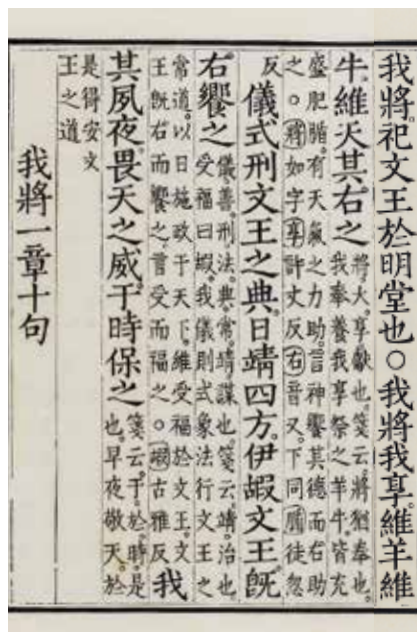 我將祀文王於明堂也○我將我享維羊維
牛維天其右之
將大享獻也箋云將猶奉也
我奉養我享祭之羊牛皆充
盛肥腯有天氣之力助言神饗其德而右助
之○將如字享許丈反右音又下同腯徒忽
反
儀式刑文王之典日靖四方伊嘏文王既
右饗之
儀善刑法典常靖謀也箋云靖治也
受福曰嘏我儀則式象法行文王之
常道以日施政于天下維受福於文王文
王既右而饗之言受而福之○嘏古雅反
我
其夙夜畏天之威于時保之
箋云于於時是
也早夜敬天於
是得安文
王之道
我將一章十句